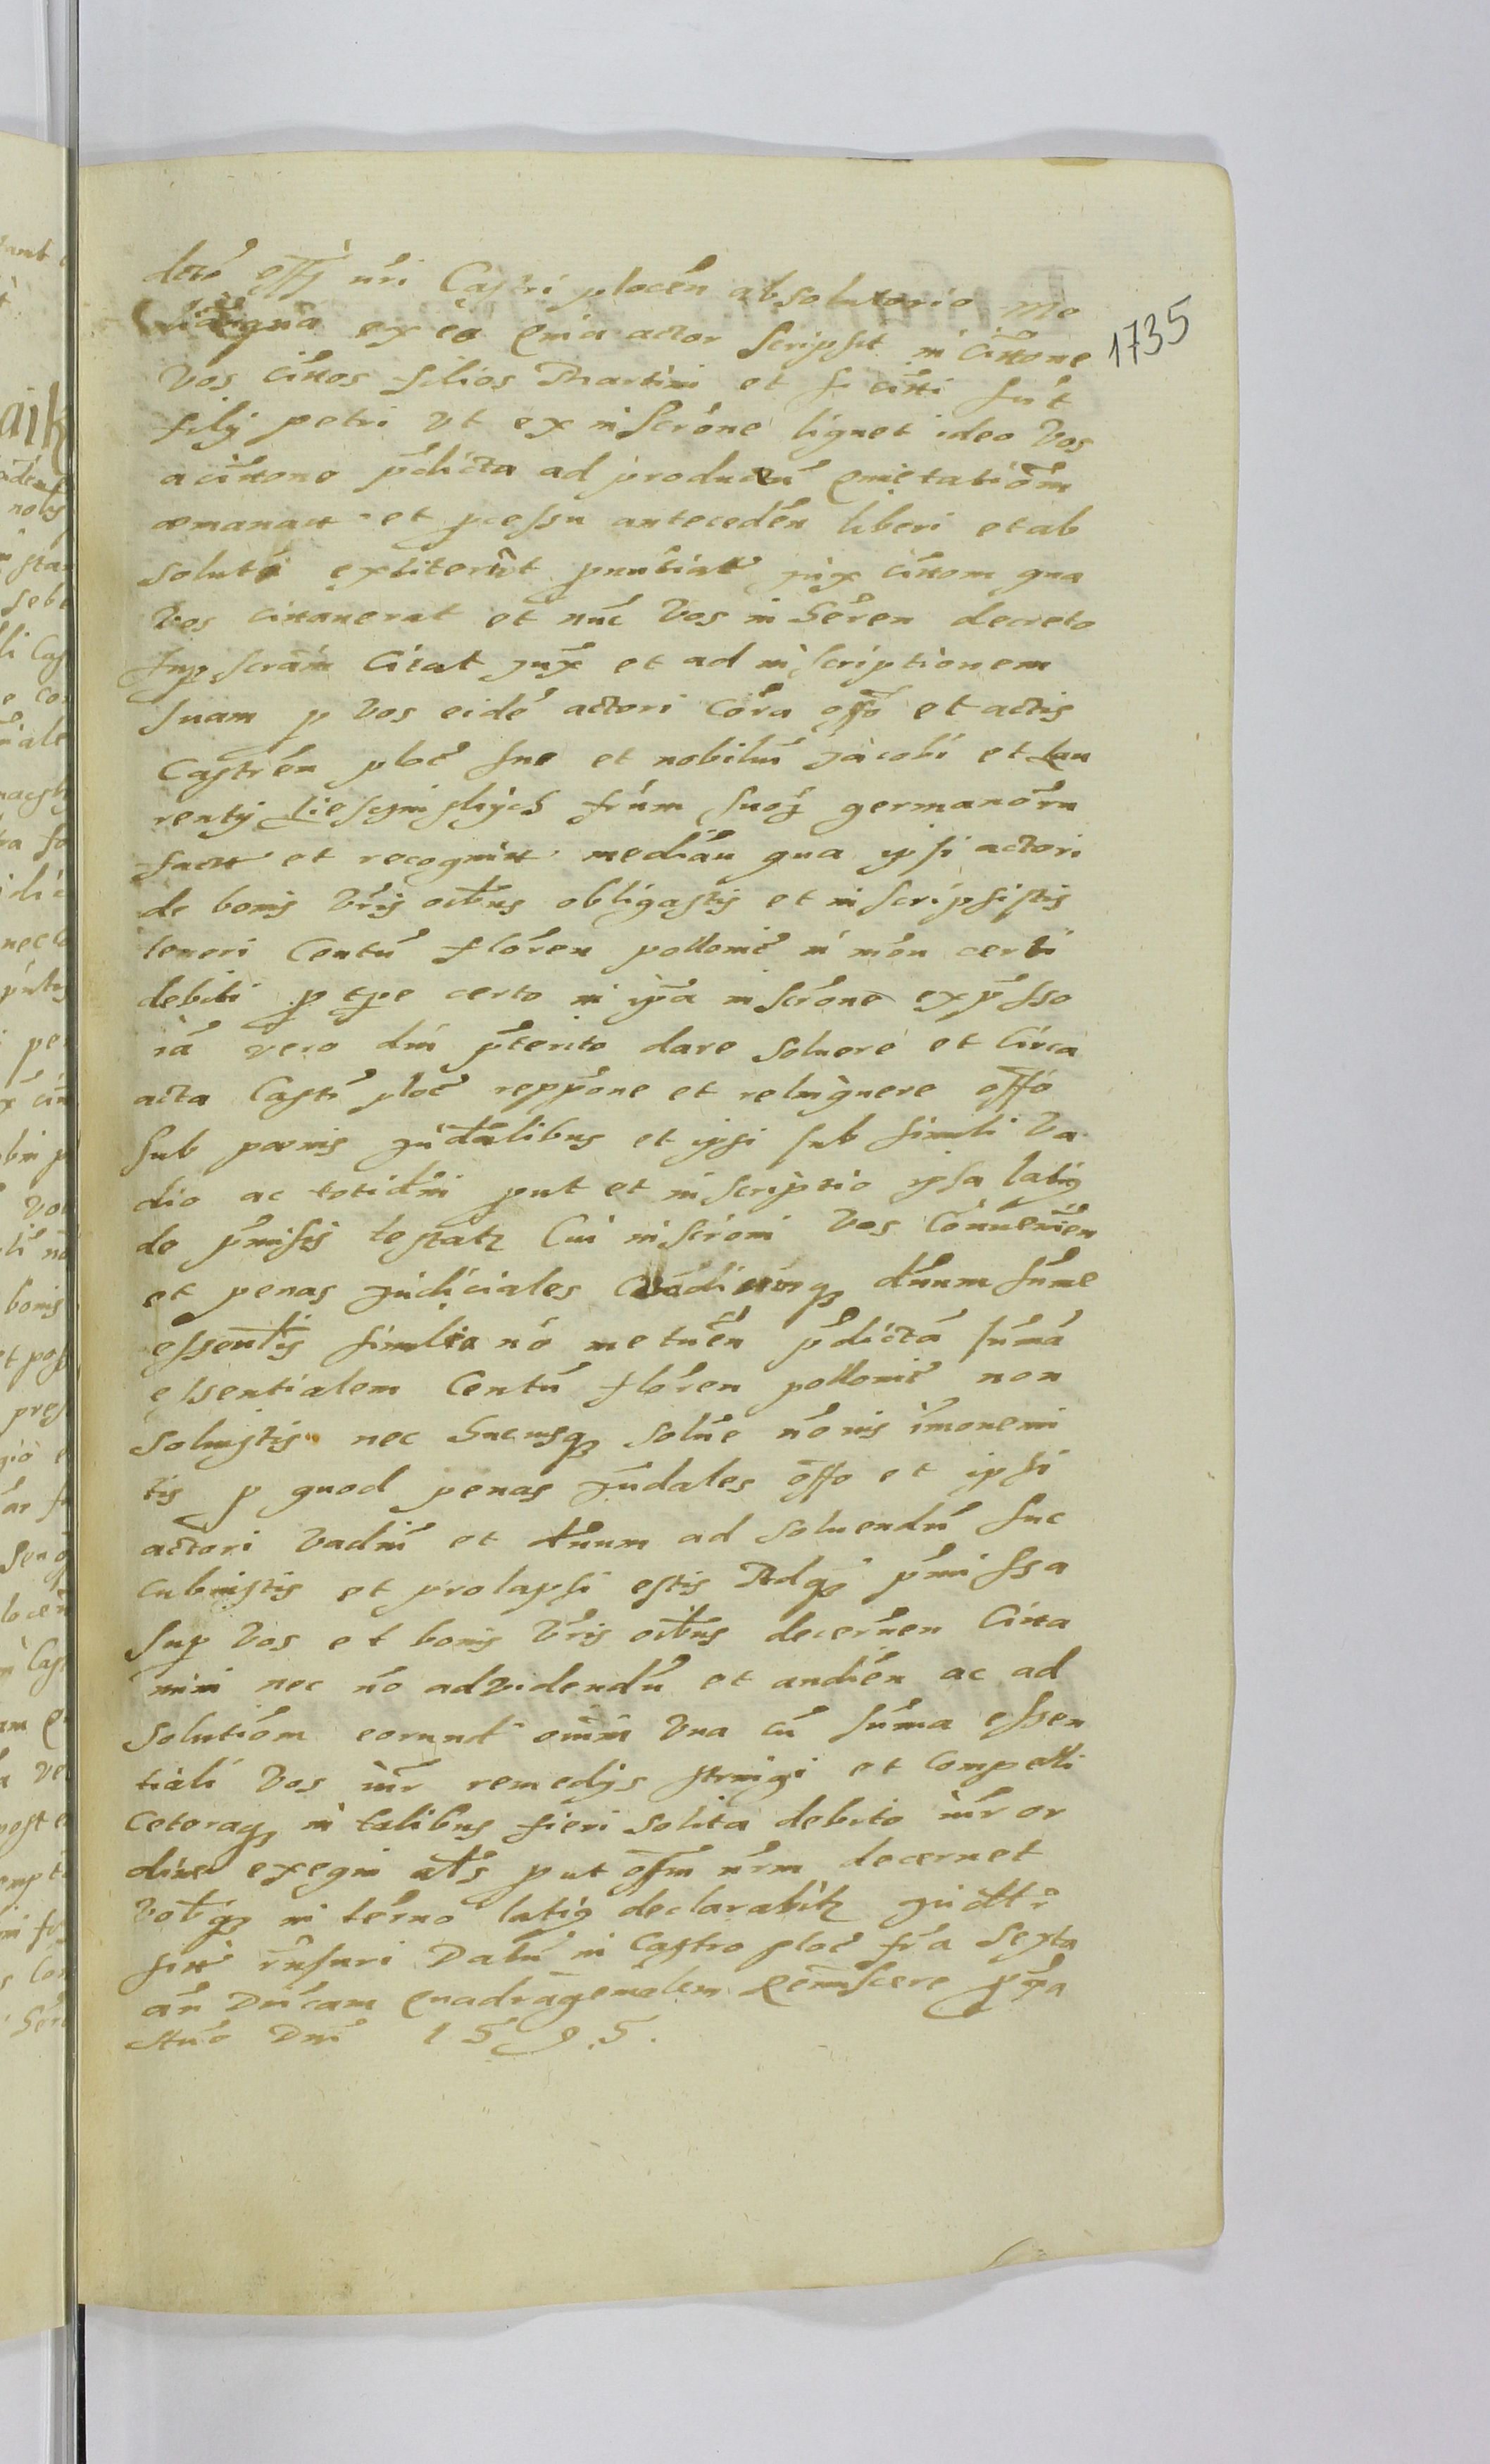 dete offi nri Castri plocen absolutorio me
diante qua ex eo quia actor scripsit in cittone
Vos cittos filios Martini et si citti sut
filij petri Vt ex inscrone liquet ideo Vos
a cittone pdicta ad productu quietatiom
emanatt et pcessu anteceden liberi et ab
soluti extiterut pnutiat jux cittom qua
Vos cittauerat et nuc Vos in seren decreto
supscram Citat jux et ad inscriptionem
suam p Vos eide actori cora offo et actis
Castren ploc suo et nobiliu Jacobi et Lau
rentij frum suor germanoru
factt et recognitt median qua ipsi actori
de bonis Vris oibus obligastis et inscripsistis
teneri Centu floren pollonic in mon certi
debiti p tpe certo in ipa inscrone expsso
ia vero diu pterito dare soluere et Circa
acta Castr ploc reppone et relinquere offo
sub paenis judalibus et ipsi sub simili Va
dio ac totidmi put et inscriptio ipsa latig
de pmisis testatr Cui inscroni Vos conuenien
et penas judiciales Vadiumq dnum sume
essentlis similia no metuen pdicta suma
essentialem Centu floren pollonic non
soluistis nec hucusq solue no uis imo nemi
tis p quod penas judales offo et ipsi
actori Vadiu et dnum ad soluendu suc
cubuistis et prolapsi estis Adq pmissa
sup Vos et bonis Vris oibus decernen Citta
mini nec no ad videndu et audien ac ad
solutiom eorund oium Vna cu suma essen
tiali Vos iur remedijs stringi et Compelli
Ceteraq in talibus fieri solita debito iur or
dine exequi als put offm nrm decernet
Votq in terno latig declarabitr judtr
sitt rnsuri Datu in Castro ploc fra Sexta
an Dnicam Quadragenalem Reminiscere pxa
Ano Dni 1595.
1735